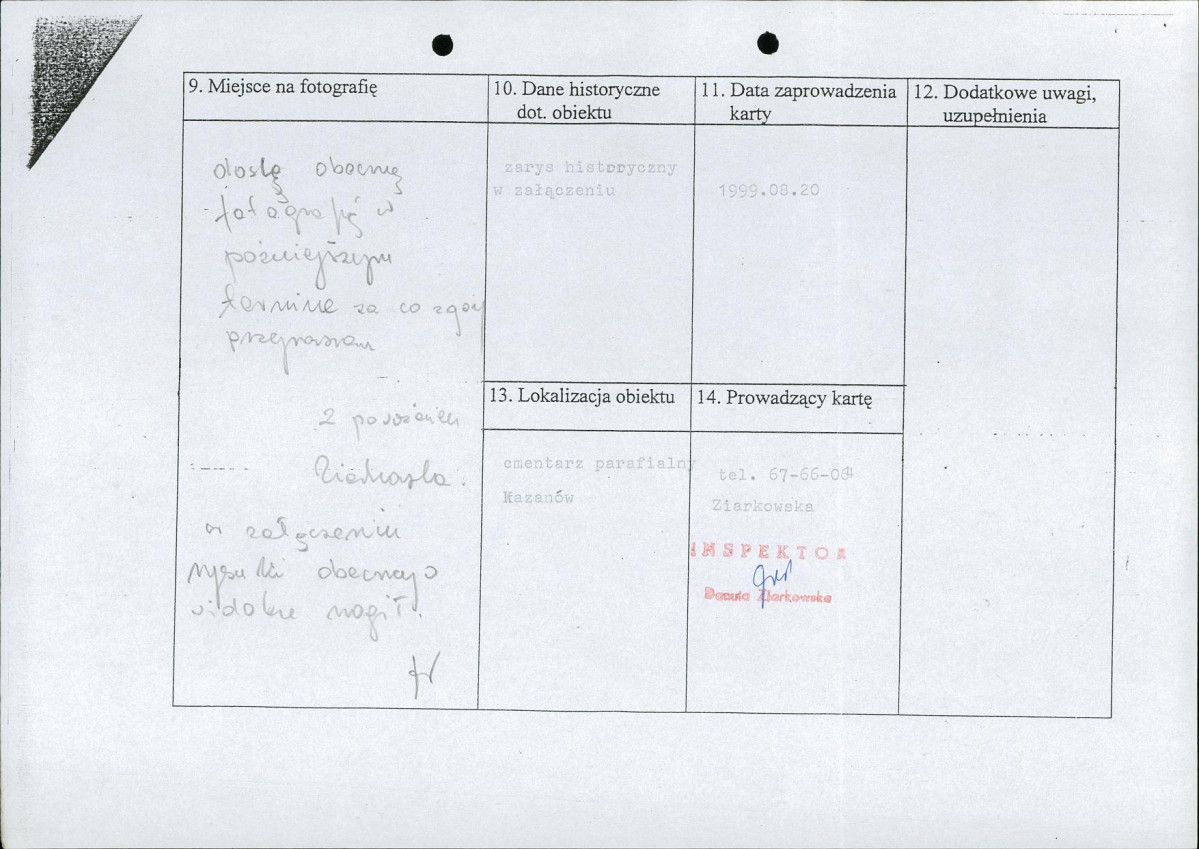 9. Miejsce na fotografię
10. Dane historyczne
dot. obiektu
11. Data zaprowadzenia
karty
12. Dodatkowe uwagi,
uzupełnienia
doslę obecnie
fotografię w
późniejszym
termine za co z góry
przepraszam
Z poważaniem
w załączeniu
rysunki obecnego
widoku mogił.
zarys historyczny
w załączeniu
1999.08.20
13. Lokalizacja obiektu
14. Prowadzący kartę
cmentarz parafialny
Kazanów
tel. 67-66-04
Ziarkowska
INSPEKTOR
Danuta Ziarkowska